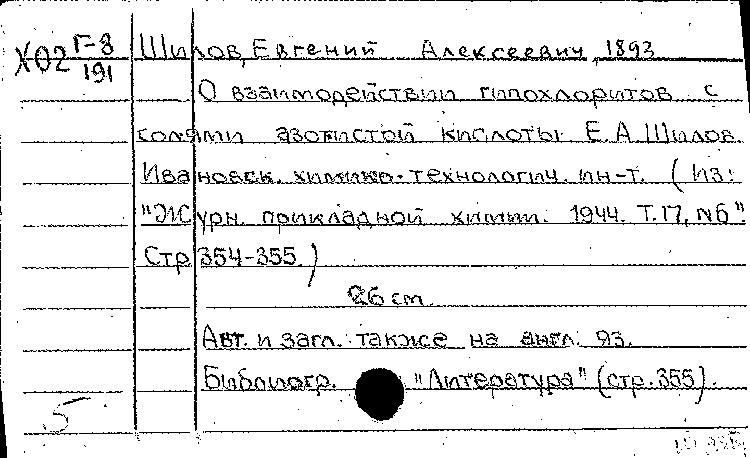 Х02 Г-8/191 Шилов, Евгений Алексеевич, 1893
О взаимодействии гипохлоритов с
солями азотистой кислоты Е.А Шилов.
Ивановск. химико-технологич. ин-т. (Из:
"Журн. прикладной химии. 1944. Т.17, №6".
Стр 354-355.)
26 cm.
Авт. и загл. также на англ. яз.
Библиогр. "Литература" (стр. 355).
5